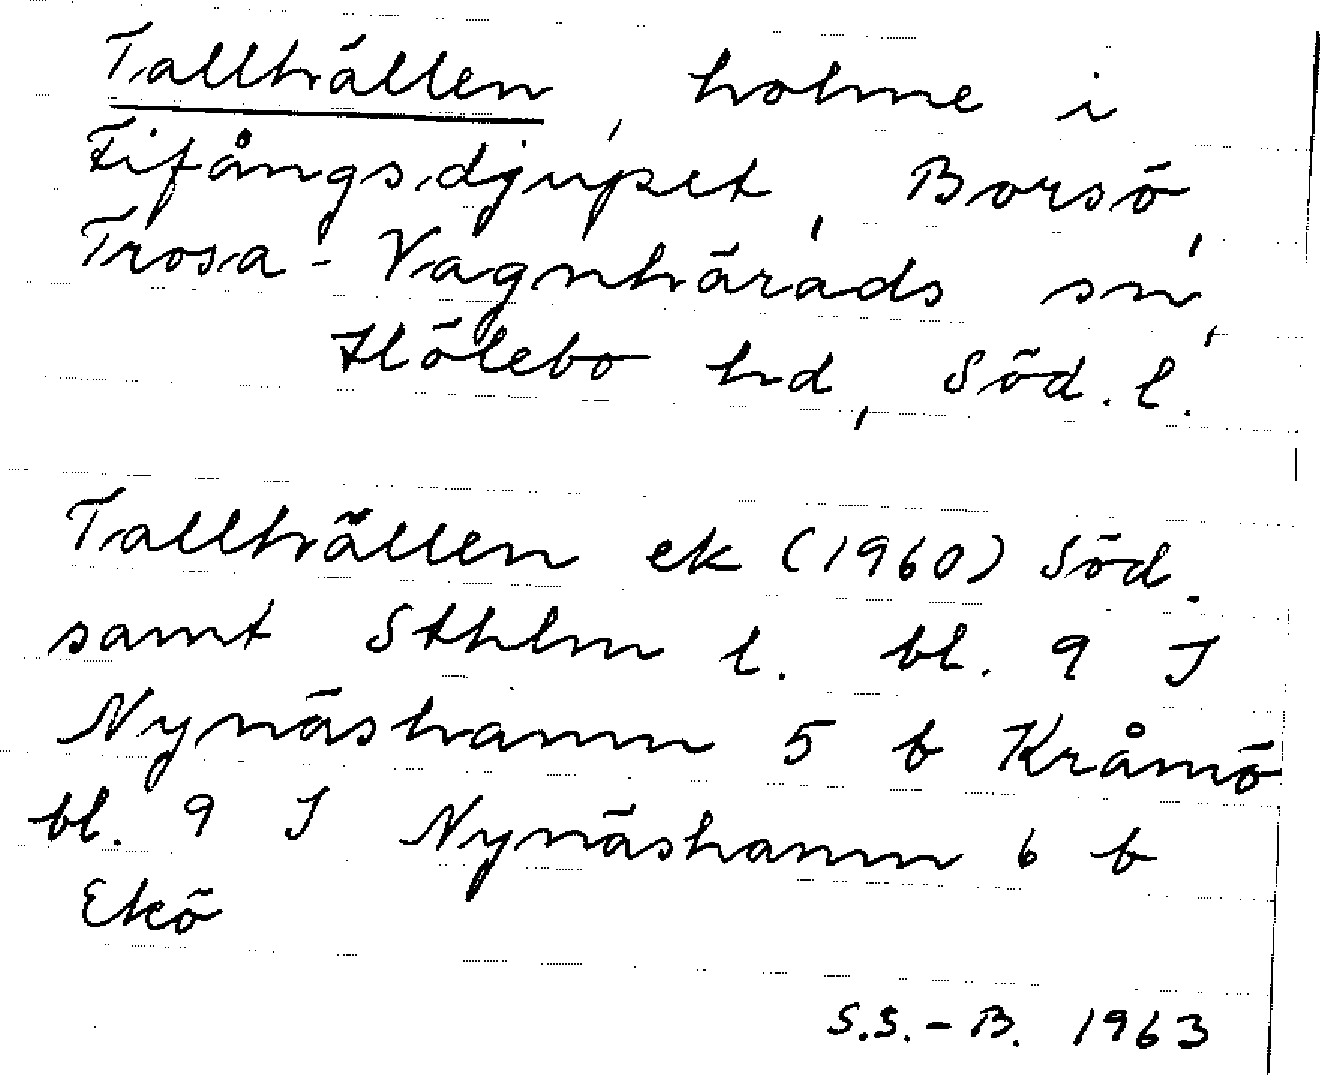 Tallhällen, holme i
Fifångsdjupet, Borsö,
Trosa-Vagnhärads sn,
Hölebo hd, Söd. l.
Tallhällen ek (1960) Söd.
samt Sthlm l. bl. 9 I
Nynäshamn 5 b Kråmö
bl. 9 I Nynäshamn 6 b
Ekö
S.S.-B. 1963